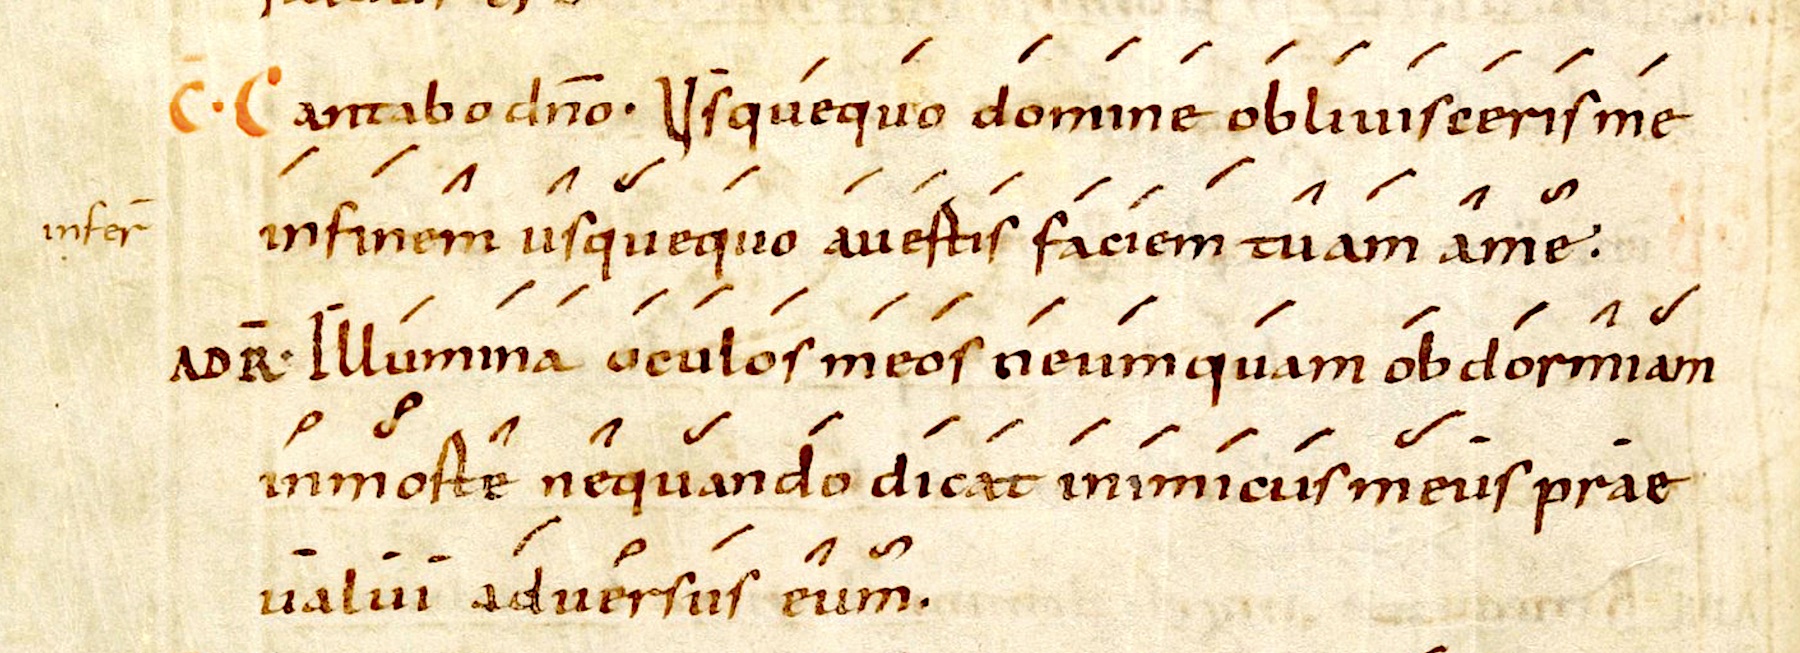 C̄· Cantabo dn̄o· Usquequo domine obliuisceris me
infer̄
infinem usquequo auertis faciem tuam ame·
ADR̄· Illumina oculos meos neumquam obdormiam
inmorte nequando dicat inimicus meus prae
ualui aduersus eum.